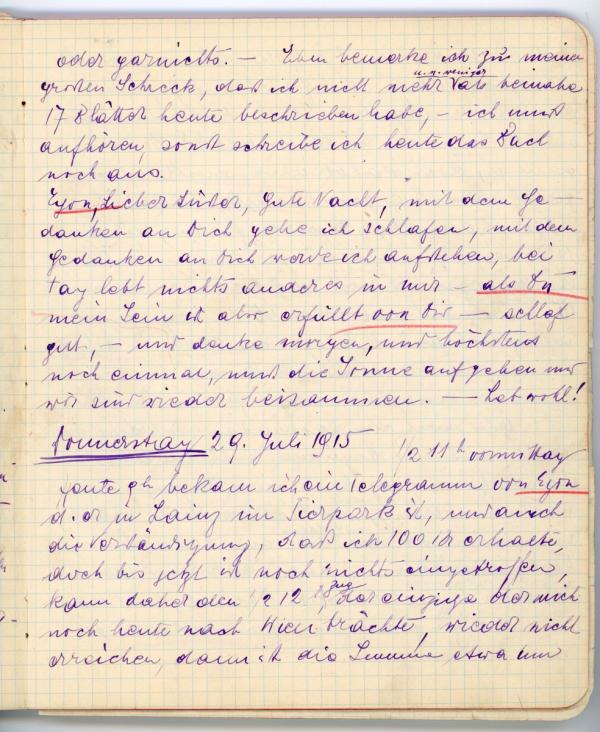 oder garnichts. — Eben bemerke ich zu meinem
großen Schreck, daß ich nicht mehr u. n. weniger als beinahe
17 Blätter heute beschrieben habe, – ich muß
aufhören, sonst schreibe ich heute das Buch
noch aus.
Egon, Lieber Süßer, Gute Nacht, mit dem Ge-
danken an Dich gehe ich schlafen, mit dem
Gedanken an Dich werde ich aufstehen, bei
Tag lebt nichts anderes in mir – als Du
mein Sein ist aber erfüllt von Dir — schlaf
gut, – und denke morgen, und höchstens
noch einmal, muß die Sonne aufgehen und
wir sind wieder beisammen. — Leb wohl!
Donnerstag 29. Juli 1915 1/2 11 h vormittag
Heute 9h bekam ich ein Telegramm von Egon
d. er in Lainz im Tierpark ist, und auch
die Verständigung, daß ich 100 Kr erhalte,
doch bis jetzt ist noch nichts eingetroffen,
kann daher den 1/2 12 h Zug, der einzige der mich
noch heute nach Wien brächte, wieder nicht
erreichen, dann ist die Summe etwa um